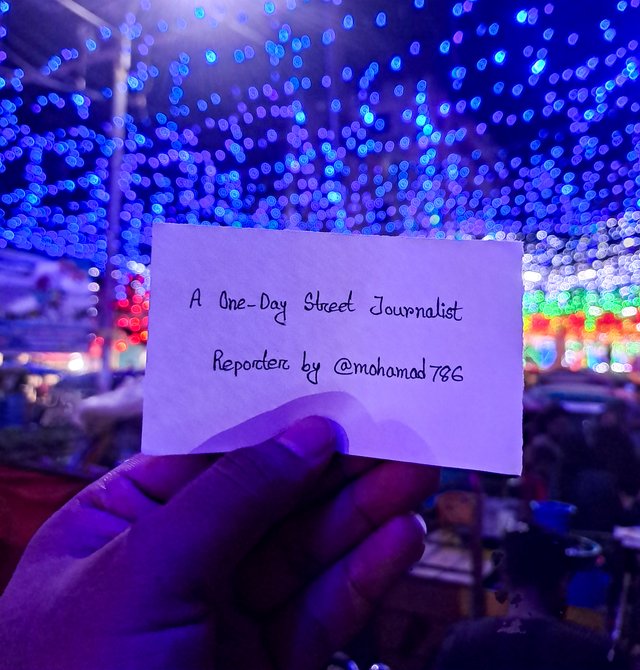 A One-Day Street Journalist
Reporter by @mohamad786